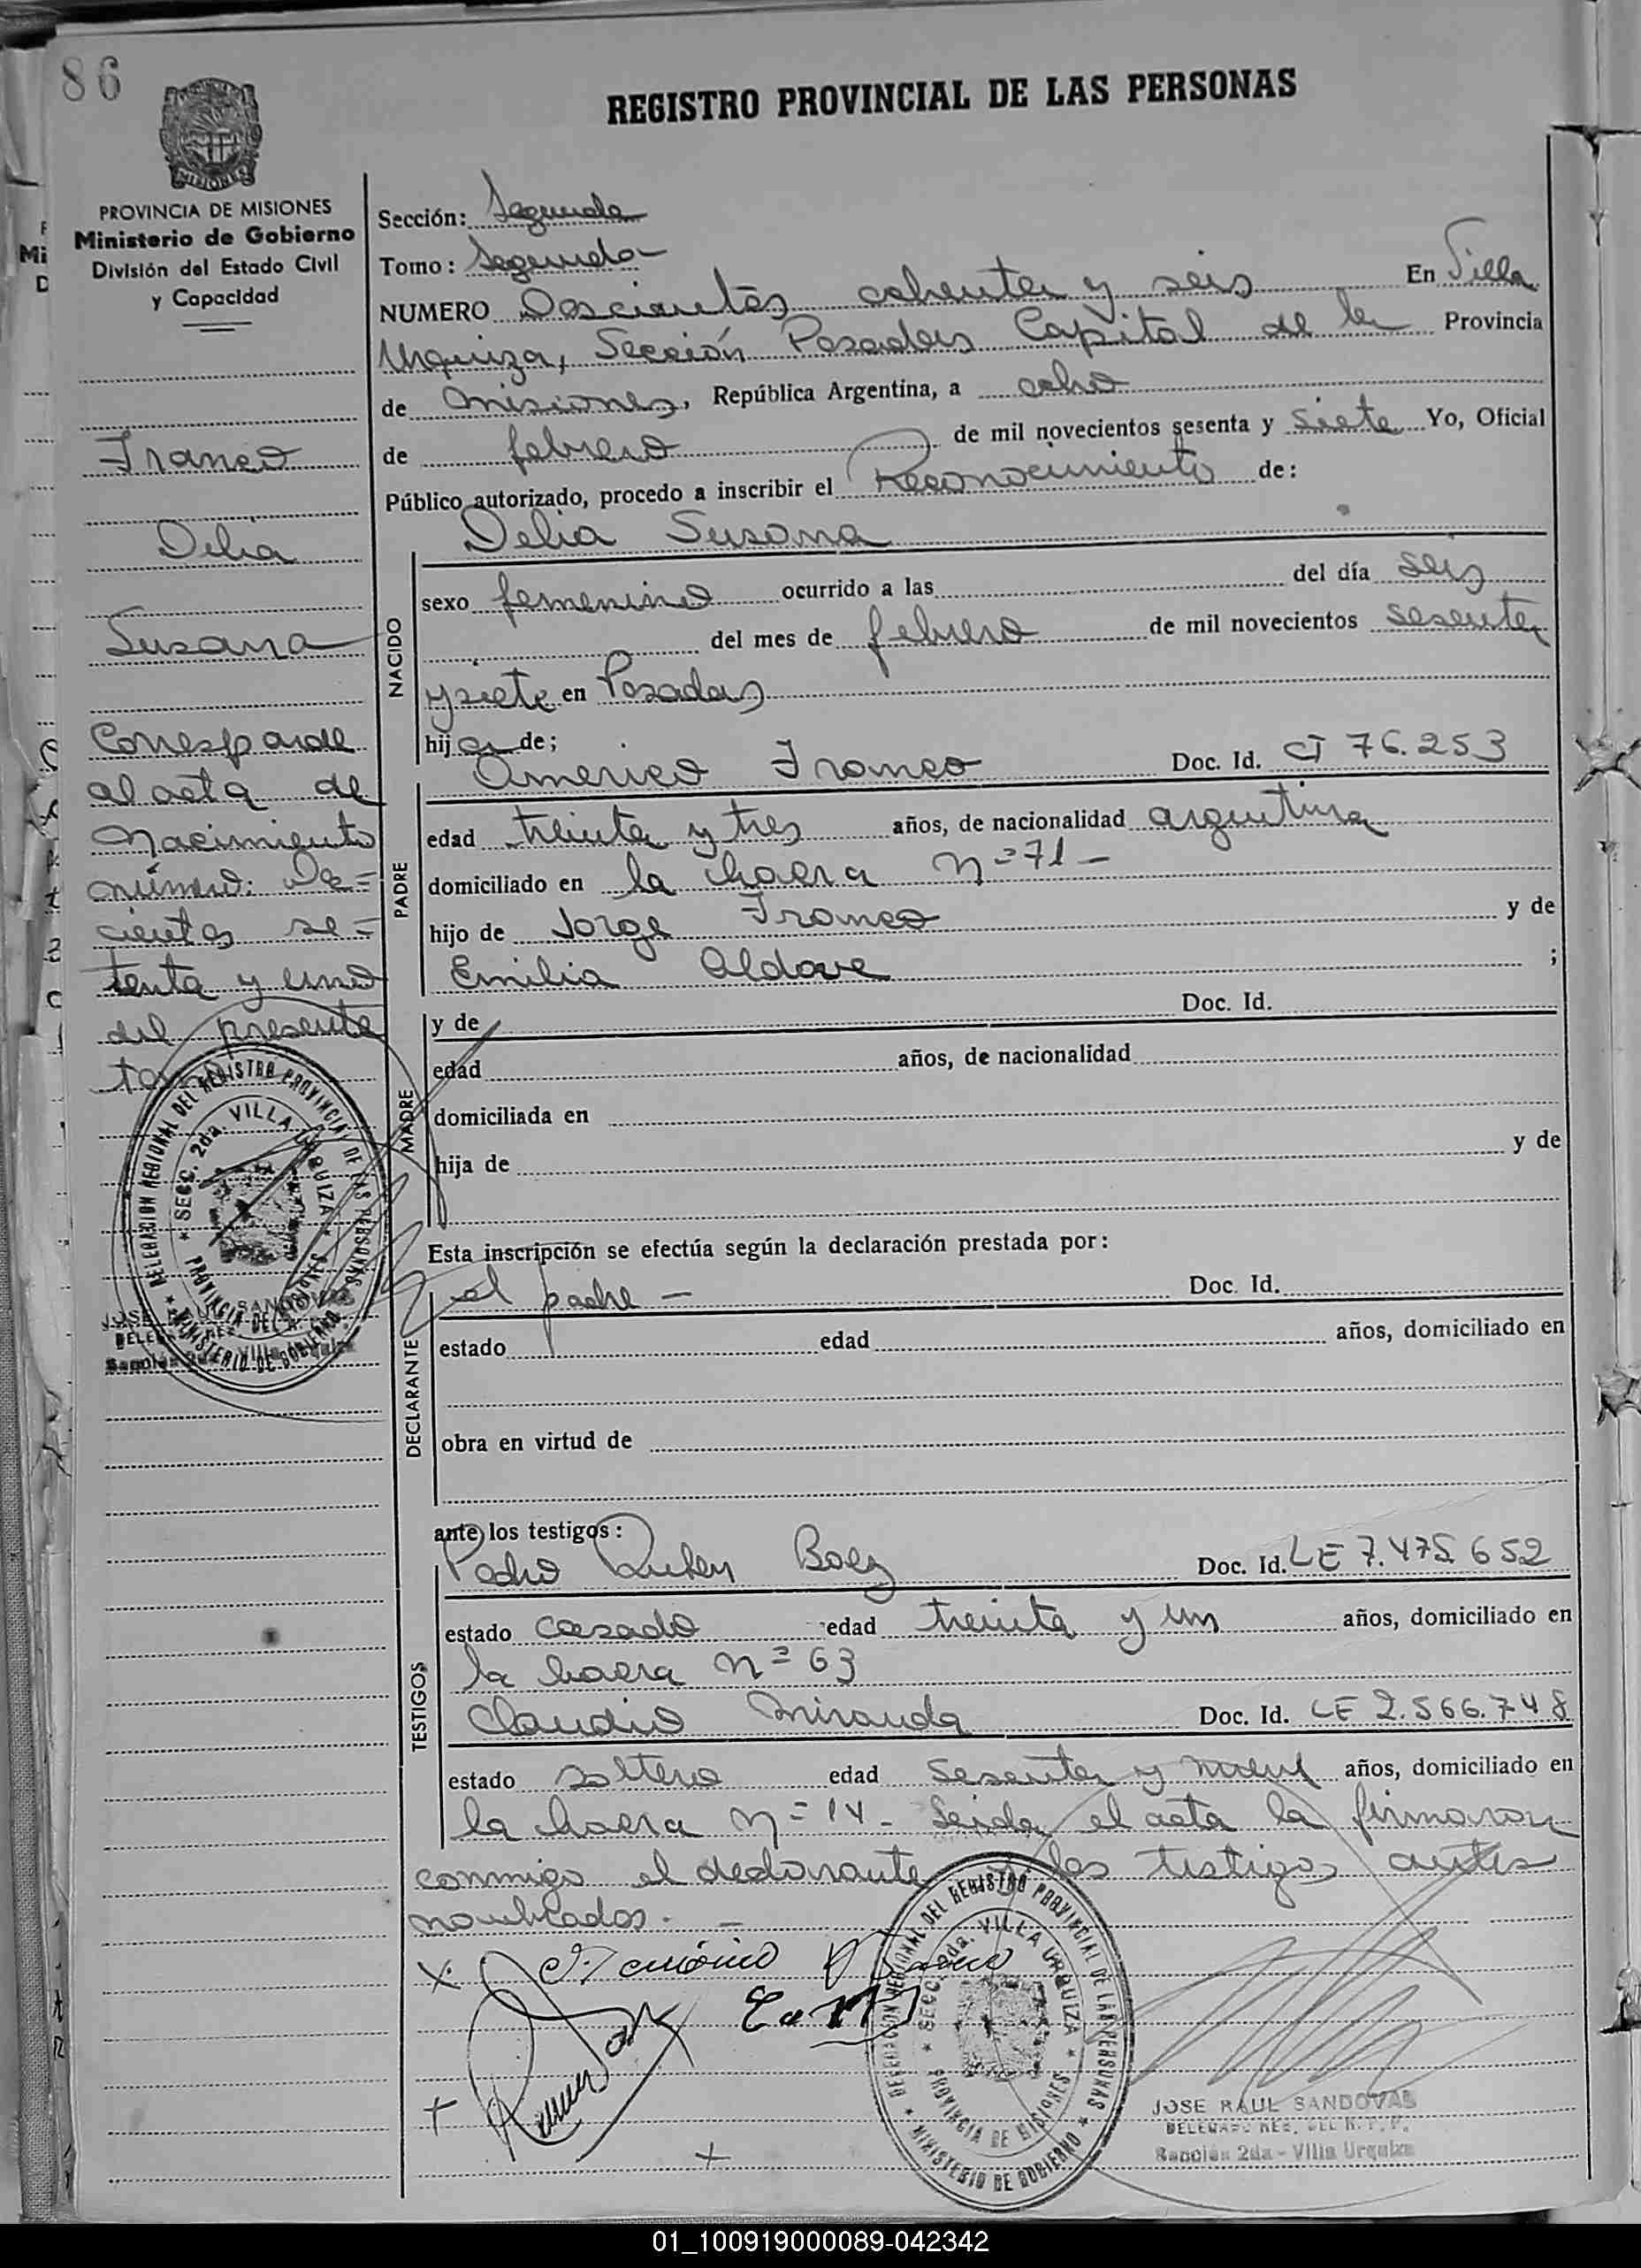 86
REGISTRO PROVINCIAL DE LAS PERSONAS
MISIONES
PROVINCIA DE MISIONES
Ministerio de Gobierno
División del Estado Civil
y Capacidad
Franco
Delia
Susana
Corresponde
al acta de
nacimiento
número: Dos=
cientos se=
tenta y uno
del presente
tomo
Sección: Segunda
Tomo: Segundo
NUMERO Doscientos ochenta y seis En Villa
Urquiza, Sección Posadas Capital de la Provincia
de Misiones, República Argentina, a ocho
de febrero de mil novecientos sesenta y siete Yo, Oficial
Público autorizado, procedo a inscribir el Reconocimiento de:
Delia Susana
NACIDO
sexo femenino ocurrido a las del día seis
del mes de febrero de mil novecientos sesenta
y siete en Posadas
hija de;
Americo Franco Doc. Id. CI 76.253
PADRE
edad treinta y tres años, de nacionalidad argentina
domiciliado en la chacra nº 71 -
hijo de Jorge Franco y de
Emilia Aldave ;
MADRE
y de Doc. Id.
edad años, de nacionalidad
domiciliada en
hija de y de
Esta inscripción se efectúa según la declaración prestada por:
DECLARANTE
el padre - Doc. Id.
estado edad años, domiciliado en
obra en virtud de
ante los testigos:
TESTIGOS
Pedro Ruben Baez Doc. Id. LE 7.475.652
estado casado edad treinta y un años, domiciliado en
la chacra nº 63
Claudio Miranda Doc. Id. LE 2.566.748
estado soltero edad sesenta y nueve años, domiciliado en
la chacra nº 14 - Leida el acta la firmaron
conmigo el declarante y los testigos antes
nombrados. -
DELEGACION REGIONAL DEL REGISTRO PROVINCIAL DE LAS PERSONAS
SECC. 2da. VILLA URQUIZA
PROVINCIA DE MISIONES
MINISTERIO DE GOBIERNO
DELEGACION REGIONAL DEL REGISTRO PROVINCIAL DE LAS PERSONAS
SECC. 2da. VILLA URQUIZA
PROVINCIA DE MISIONES
MINISTERIO DE GOBIERNO
JOSE RAUL SANDOVAS
DELEGADO REG. DEL R. P. P.
Sección 2da - Villa Urquiza
01_100919000089-042342